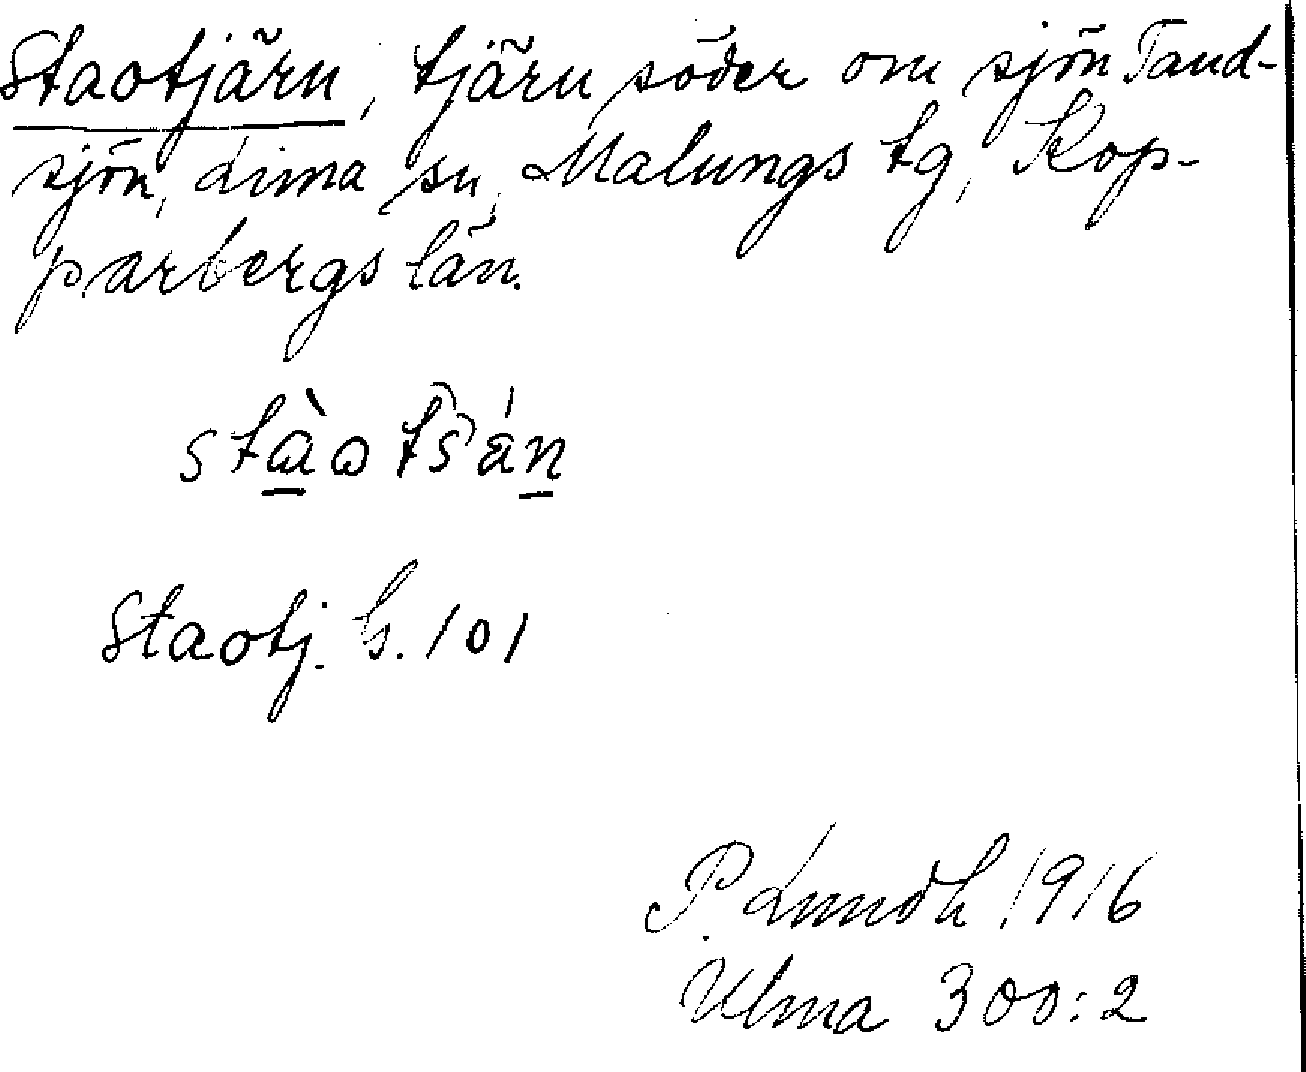 Staotjärn, tjärn söder om sjön Tand-
sjön, Lima sn, Malungs tg, Kop-
parbergs län.
stàotsán
Staotj. G. 101
P. Lundh 1916
Ulma 300:2